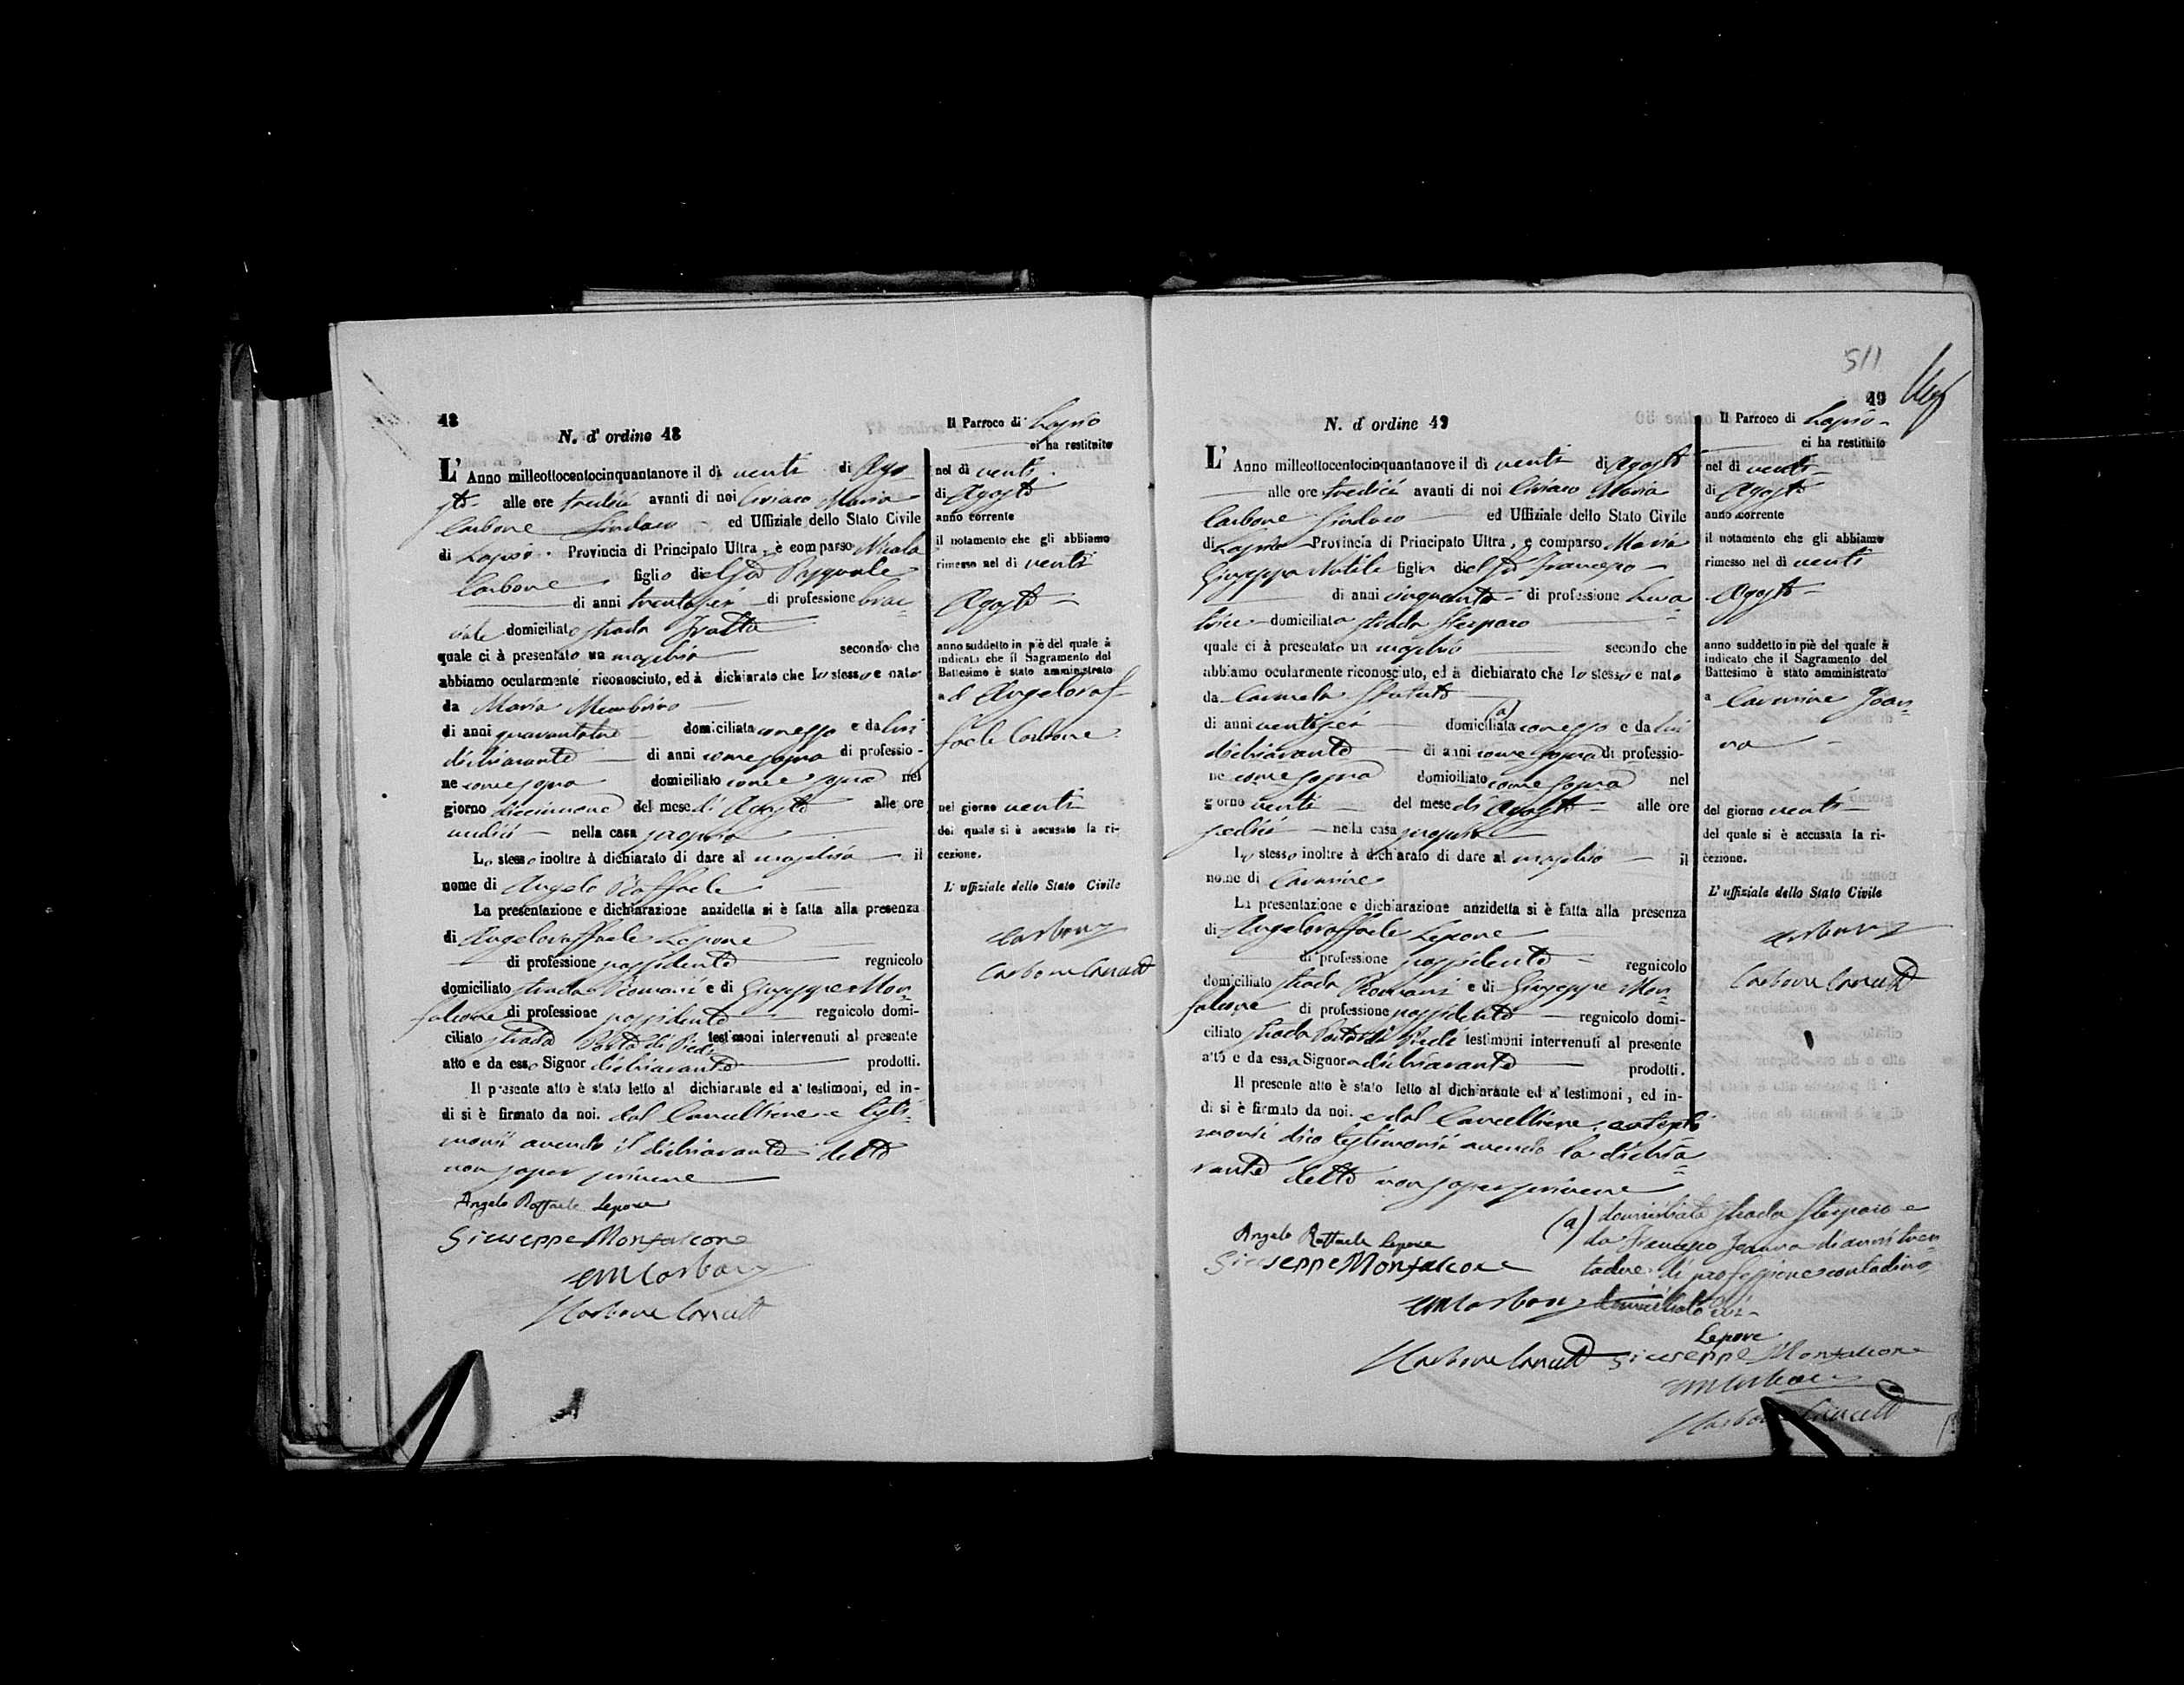 48
N. d' ordine 48
L' Anno milleottocentocinquantanove il dì venti di Ago
sto alle ore tredici avanti di noi Ciriaco Maria
Carbone Sindaco ed Uffiziale dello Stato Civile
di Lapio. Provincia di Principato Ultra, è comparso Nicola
Carbone figlio del fu Pasquale
di anni trentasei di professione brac-
ciale domiciliato strada Fratta
quale ci à presentato un maschio secondo che
abbiamo ocularmente riconosciuto, ed à dichiarato che lo stesso è nato
da Maria
di anni domiciliata con esso e da lui
dichiarante di anni come sopra di professio-
ne come sopra domiciliato come sopra nel
giorno diecinnove del mese di Agosto alle ore
undici nella casa propria
Lo stesso inoltre à dichiarato di dare al maschio il
nome di Angelo Raffaele
La presentazione e dichiarazione anzidetta si è fatta alla presenza
di Angeloraffaele Lepore
di professione possidente regnicolo
domiciliato strada Romani e di Giuseppe Mon-
falcone di professione possidente regnicolo domi-
ciliato strada Porta di Piedi testimoni intervenuti al presente
atto e da esso Signor dichiarante prodotti.
Il presente atto è stato letto al dichiarante ed a' testimoni, ed in-
di si è firmato da noi. dal Cancelliere e testi-
monii avendo il dichiarante detto
non saper scrivere
Angelo Raffaele Lepore
Giuseppe Monfalcone
CM Carbone
Carbone Cancell
Il Parroco di Lapio
ci ha restituito
nel dì venti
di Agosto
anno corrente
il notamento che gli abbiamo
rimesso nel dì venti
Agosto
anno suddetto in piè del quale à
indicato che il Sagramento del
Battesimo è stato amministrato
ad Angeloraf-
faele Carbone
nel giorno venti
del quale si è accusata la ri-
cezione.
L' uffiziale dello Stato Civile
Carbone
Carbone Cancell
511
49
N. d' ordine 49
L' Anno milleottocentocinquantanove il dì venti di Agosto
alle ore tredici avanti di noi Ciriaco Maria
Carbone Sindaco ed Uffiziale dello Stato Civile
di Lapio Provincia di Principato Ultra, è comparso Maria
Giuseppa figlia del fu Francesco
di anni cinquanta di professione Leva
trice domiciliata strada Sterparo
quale ci à presentato un maschio secondo che
abbiamo ocularmente riconosciuto, ed à dichiarato che lo stesso è nato
da Carmela
di anni ventisei (a) domiciliata con esso e da lui
dichiarante di anni come sopra di professio-
ne come sopra domiciliato come sopra nel
giorno venti del mese di Agosto alle ore
sedici nella casa propria
Lo stesso inoltre à dichiarato di dare al maschio il
nome di Carmine
La presentazione e dichiarazione anzidetta si è fatta alla presenza
di Angeloraffaele Lepore
di professione possidente regnicolo
domiciliato strada Romani e di Giuseppe Mon-
falcone di professione possidente regnicolo domi-
ciliato strada Porta di Piedi testimoni intervenuti al presente
atto e da essa Signora dichiarante prodotti.
Il presente atto è stato letto al dichiarante ed a' testimoni, ed in-
di si è firmato da noi. e dal Cancelliere
monii dico testimonii avendo la dichia-
rante detto non saper scrivere
Angelo Raffaele Lepore
Giuseppe Monfalcone
CM Carbone
Carbone Cancell
(a) domiciliata strada Sterparo e
da Francesco Joanna di anni tren-
tadue di professione contadino
domiciliato ivi
Lepore
Giuseppe Monfalcone
CM Carbone
Carbone Cancell
Il Parroco di Lapio
ci ha restituito
nel dì venti
di Agosto
anno corrente
il notamento che gli abbiamo
rimesso nel dì venti
Agosto
anno suddetto in piè del quale à
indicato che il Sagramento del
Battesimo è stato amministrato
a Carmine Joan-
na
del giorno venti
del quale si è accusata la ri-
cezione.
L' uffiziale dello Stato Civile
Carbone
Carbone Cancell